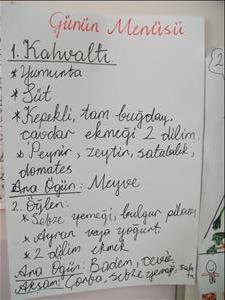 Günün Menüsü
1. Kahvaltı
* Yumurta
* Süt
* Kepekli, tam buğday.
çavdar ekmeği 2 dilim.
* Peynir, zeytin, satalalık,
domates
Ana Öğün: Meyve
2. Öğlen:
* Sebze yemeği, bulgur pilavı
* Ayran veya yoğurt.
* 2 dilim ekmek
Ana Öğün: Badem, ceviz
Akşam: Çorba, sebze yemeği,
2